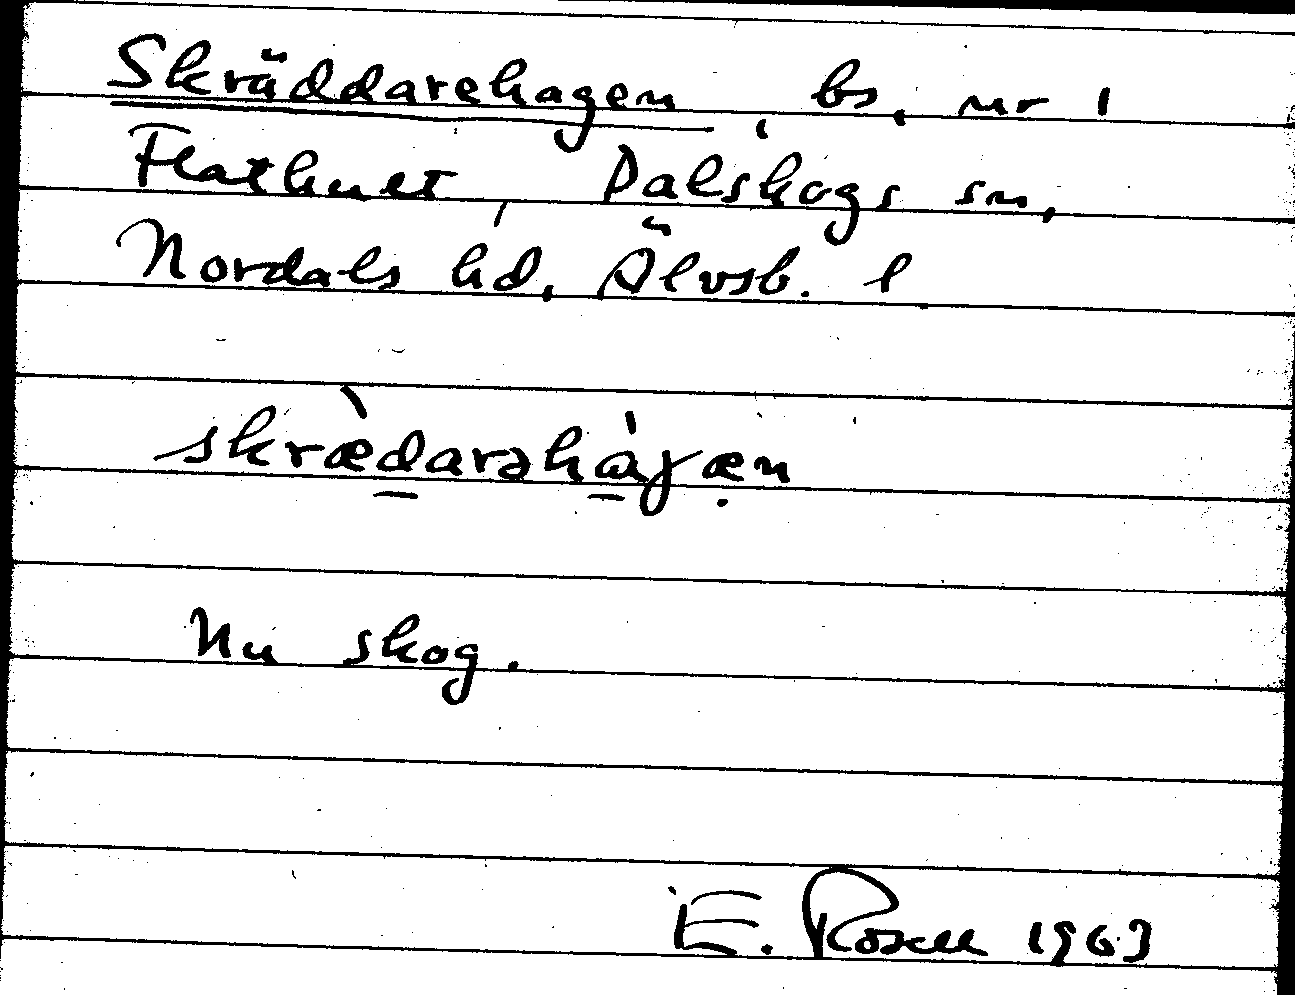 Skräddarehagen, bs, nr 1
Flathult, Dalskogs sn,
Nordals hd, Älvsb. l
skrædarəhàgæn
Nu skog.
E. Rosell 1963